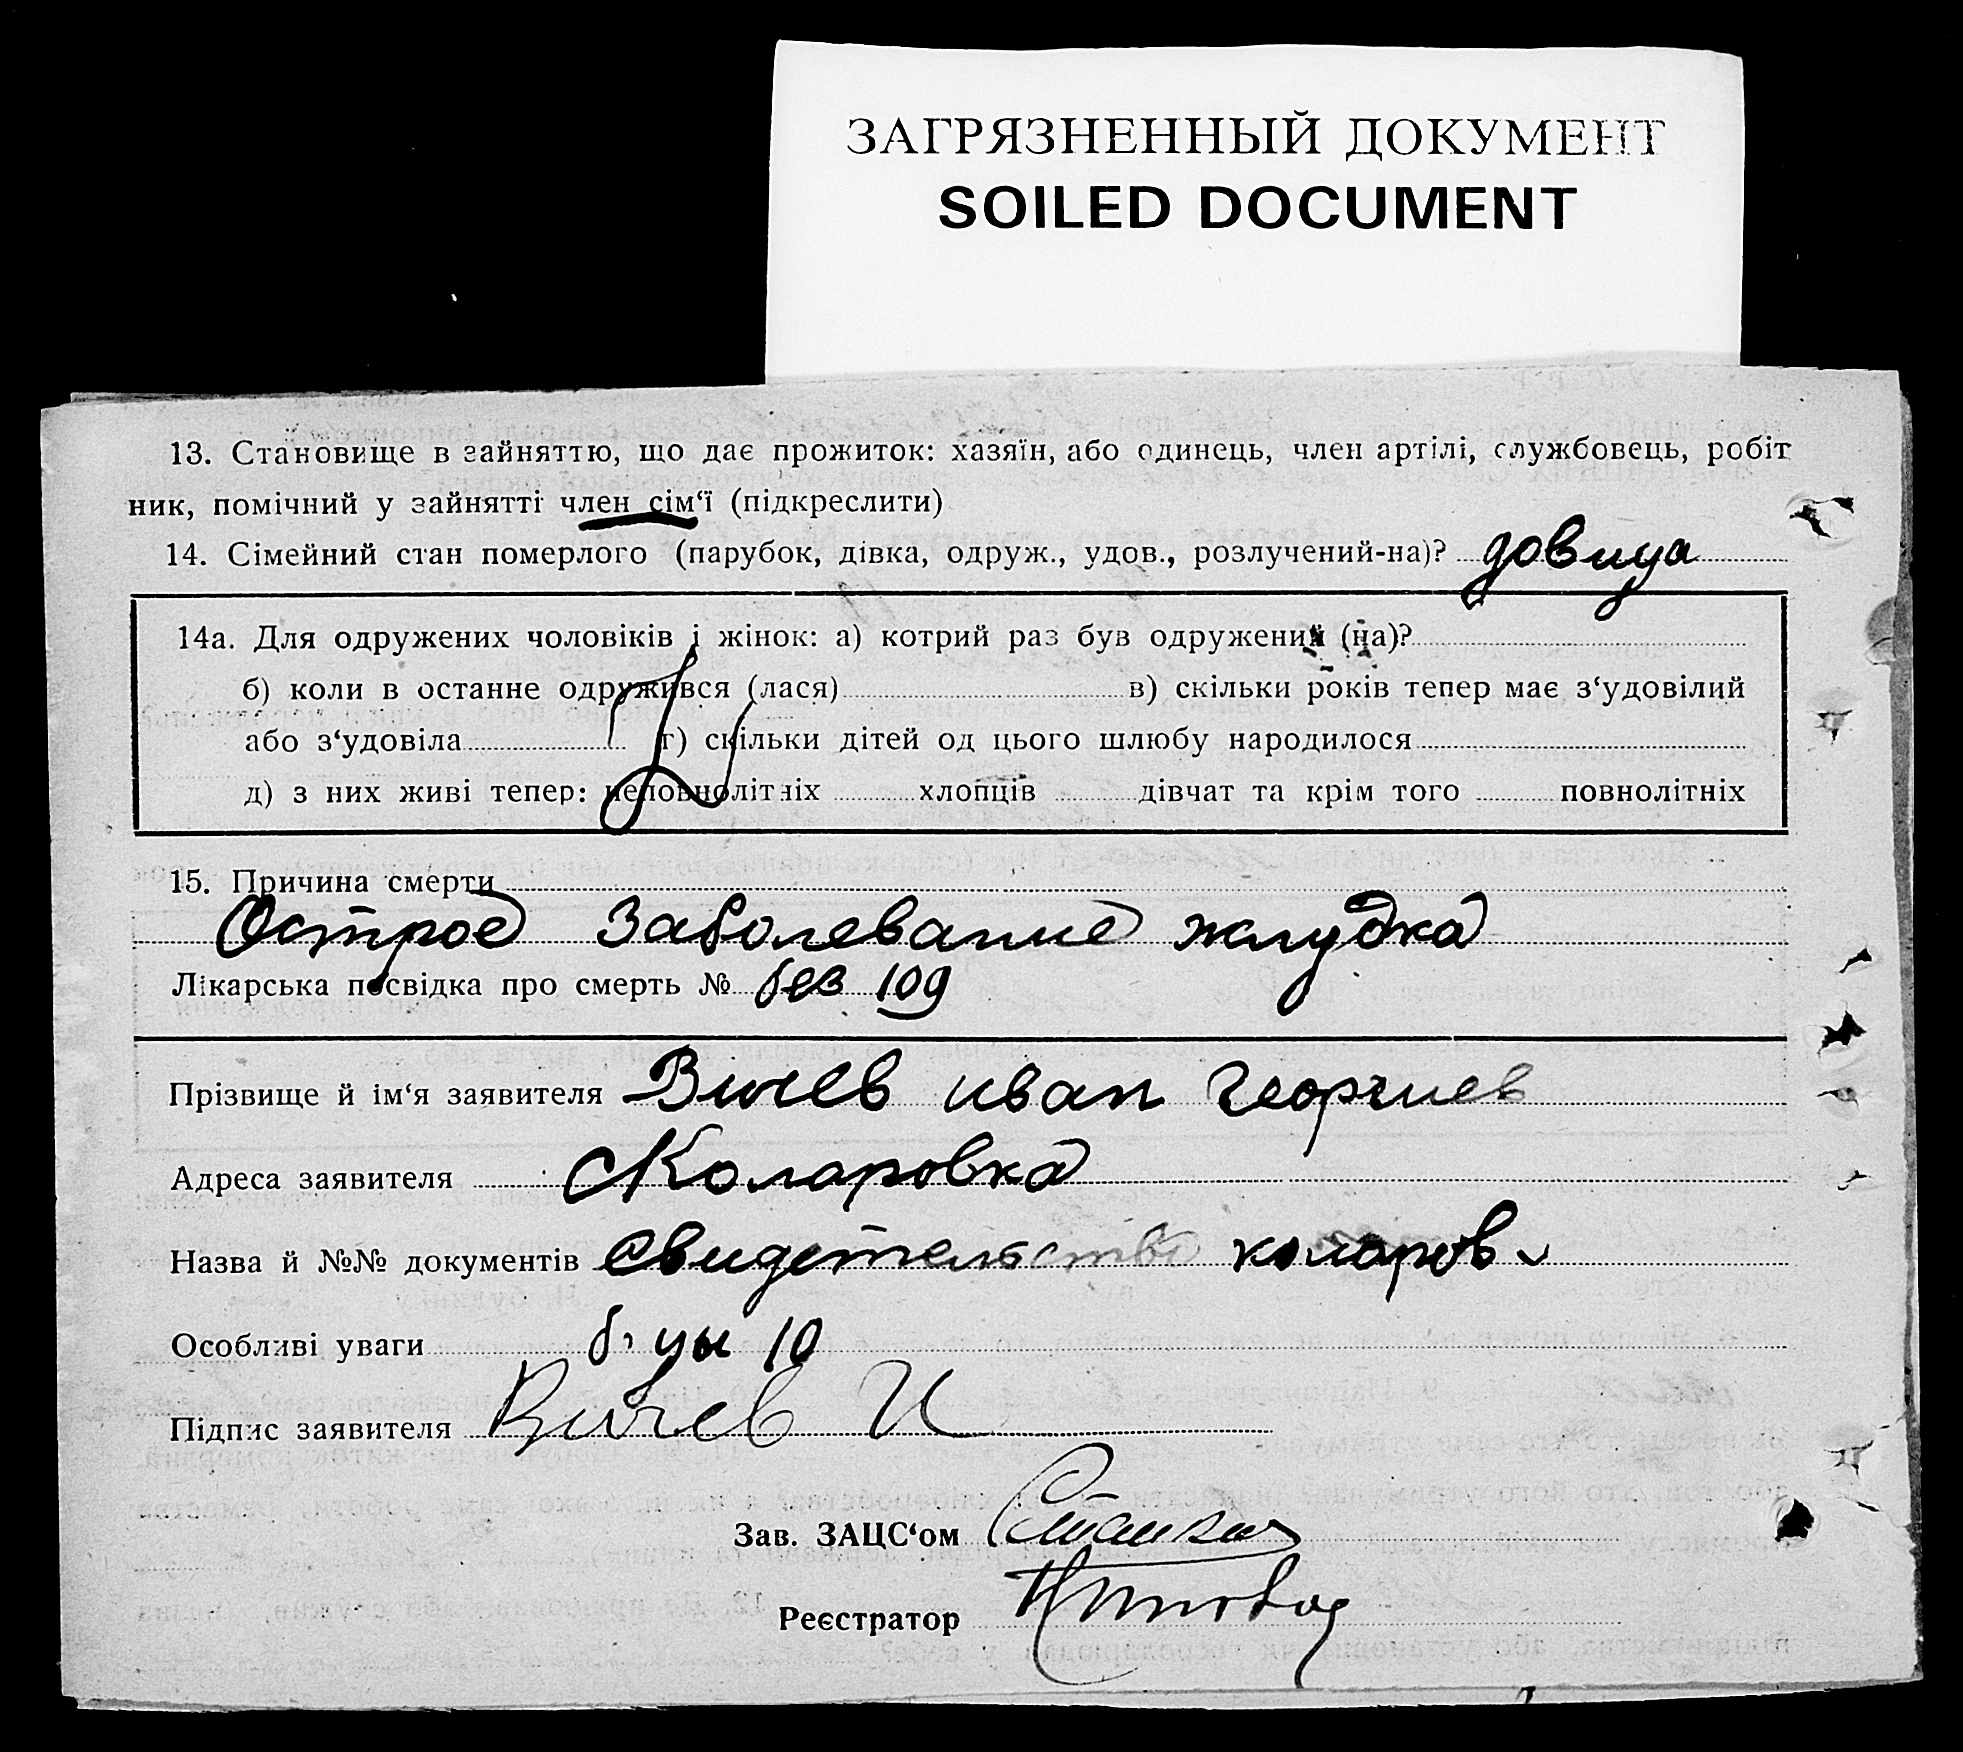 ЗАГРЯЗНЕННЫЙ ДОКУМЕНТ
SOILED DOCUMENT
13. Становище в зайняттю, що дає прожиток: хазяїн, або одинець, член артілі, службовець, робіт
ник, помічний у зайнятті член сім‘ї (підкреслити)
14. Сімейний стан померлого (парубок, дівка, одруж., удов., розлучений-на)? довица
14а. Для одружених чоловіків і жінок: а) котрий раз був одружений (на)?
б) коли в останне одружився (лася) в) скільки років тепер має з‘удовілий
або з‘удовіла г) скільки дітей од цього шлюбу народилося
д) з них живі тепер: неповнолітніх хлопців дівчат та крім того повнолітніх
15. Причина смерти
Острое заболевание жлудка
Лікарська посвідка про смерть № без
Прізвище й ім‘я заявителя Вичев иван георгиев
Адреса заявителя с Коларовка
Назва й №№ документів свидетельство коларов
Особливі уваги б цы 10
Підпис заявителя Вичев И
Зав. ЗАЦС‘ом
Реєстратор